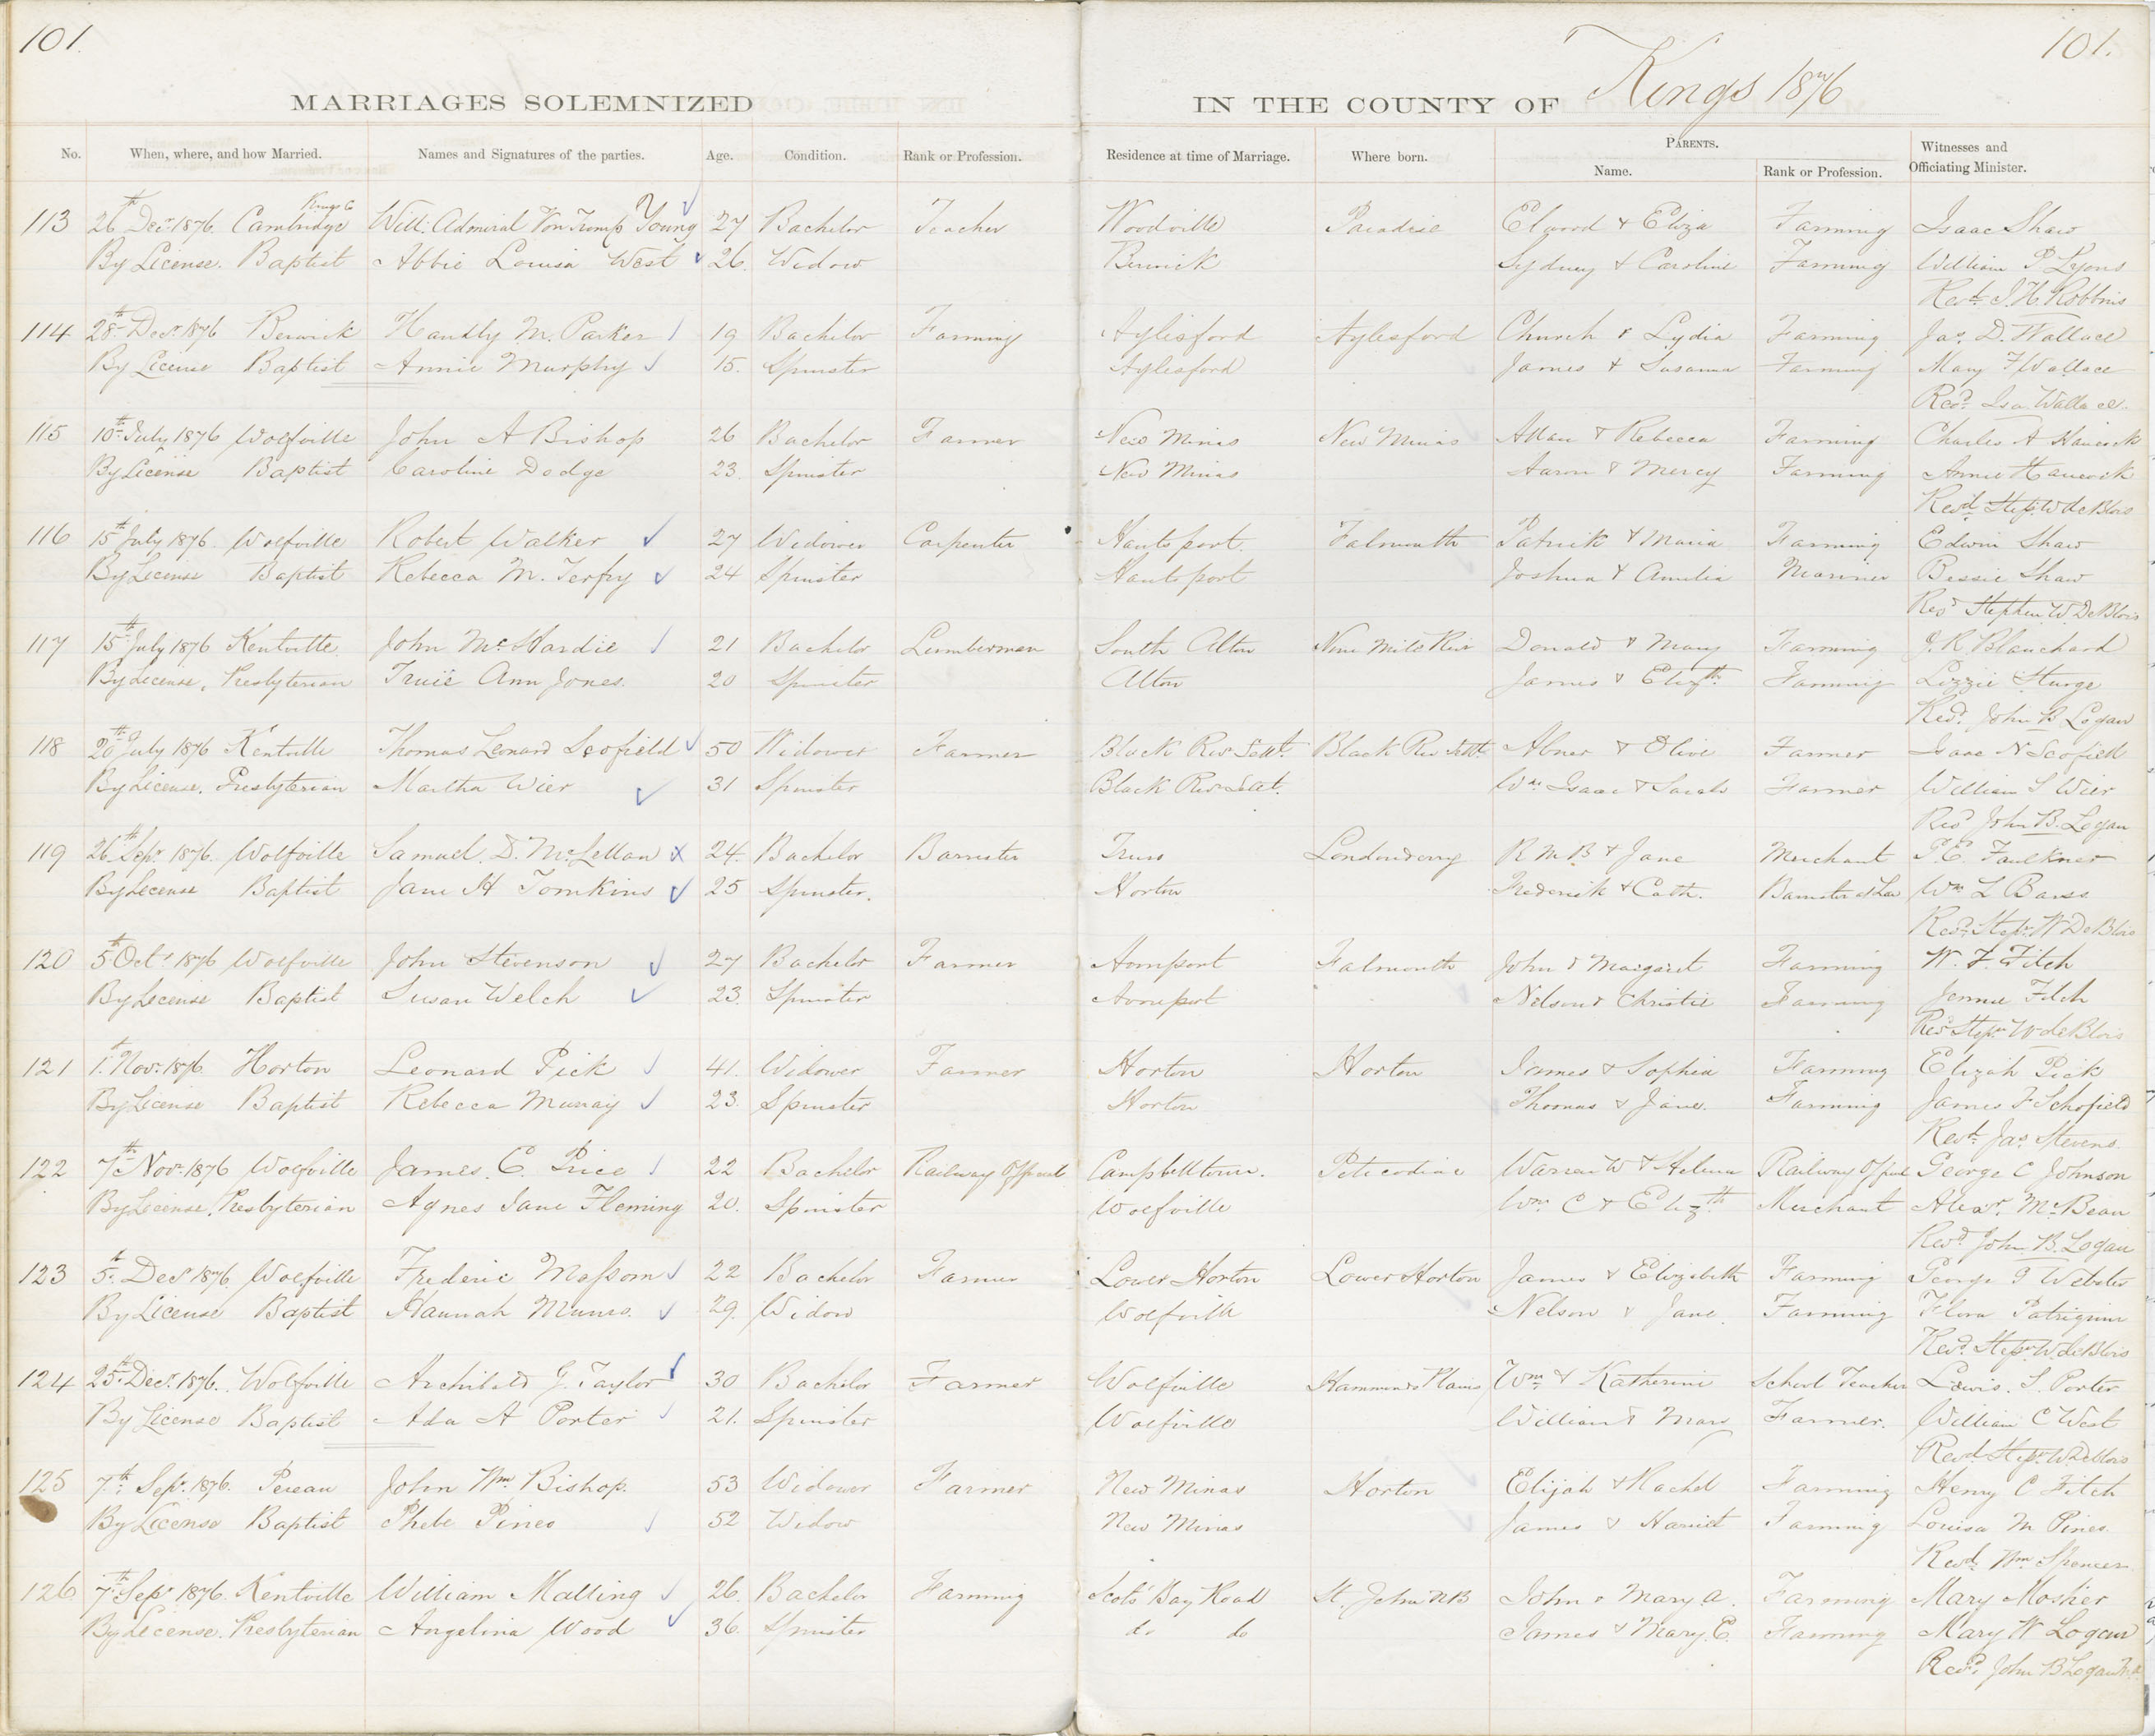 101.
101.
MARRIAGES SOLEMNIZED IN THE COUNTY OF Kings 1876
No. When, where, and how Married. Names and Signatures of the parties. Age. Condition. Rank or Profession. Residence at time of Marriage. Where born. PARENTS. Name. Rank or Profession. Witnesses and Officiating Minister.
Kings Co
113 26th Decr 1876. Cambridge Will: Admiral Von Tromp Young 27 Bachelor Teacher Woodville Paradise Elwood & Eliza Farming Isaac Shaw
By License. Baptist Abbie Louisa West 26. Widow Berwick Sydney & Caroline Farming William P Lyons
Revd. I. H. Robbins
114 28th Decr 1876 Berwick Handly M. Parker 19 Bachelor Farming Aylisford Aylesford Church & Lydia Farming Jas. D. Wallace
By License Baptist Annie Murphy 15. Spinster Aylesford James & Susanna Farming Mary F Wallace
Revd. Isa. Wallace.
115 10th July 1876 Wolfville John A Bishop 26 Bachelor Farmer New Minas New Minas Allan & Rebecca Farming Charles A Hancock
By License Baptist Caroline Dodge 23. Spinster New Minas Aaron & Mercy Farming Annie Hancock
Revd. Step. W de Blois
116 15th July 1876 Wolfville Robert Walker 27 Widower Carpenter Hantsport. Falmouth Patrick & Maria Farming Edwin Shaw
By License Baptist Rebecca M. 24 Spinster Hantsport Joshua & Amelia Mariner Bessie Shaw
Revd Stephen W. De Blois
117 15th July 1876 Kentville. John McHardie 21 Bachelor Lumberman South Alton Nine Mile River Donald & Mary Farming J. R. Blanchard
By License, Presbyterian Ann Jones. 20 Spinster Alton James & Elizth. Farming Lizzie Sturge
Revd. John B Logan
118 20th July 1876 Kentville Thomas Lenard Scofield 50 Widower Farmer Black Rivr Settt. Black Riv Settt. Abner & Olive Farmer Isaac N Scofield
By License. Presbyterian Martha Wier 31 Spinster Black Rivr Settt. Wm Isaac & Sarah Farmer William S Wier
Revd John B. Logan
119 26th Sepr. 1876. Wolfville Samuel. D. McLellan 24. Bachelor Barrister Truro Londonderry R M B & Jane Merchant Faulkner
By License Baptist Jane H Tomkins 25 Spinster. Horton Frederick & Cath. Barrister at Law Wm L Barss
Revd. Stepn. W De Blois
120 5th Oct. 1876 Wolfville John Stevenson 27 Bachelor Farmer Avonport Falmouth John & Margaret Farming W. F. Fitch
By License Baptist Susan Welch 23. Spinster Avonport Nelson & Christie Farming Jennie Fitch
Revd Stepn W de Blois
121 1st. Novr. 1876. Horton Leonard Pick 41. Widower Farmer Horton Horton James & Sophia Farming Elizah Pick
By License Baptist Rebecca Murray 23. Spinster Horton Thomas & Jane. Farming James F Schofield
Revd. Jas. Stevens.
122 7th Novr. 1876 Wolfville James. C. Price 22 Bachelor Railway Official Campbelltown. Peticodiac Warren W & Helena Railway Official George C Johnson
By License. Presbyterian Agnes Jane Fleming 20. Spinster Wolfville Wm C & Elizth Merchant Alexr. McBean
Revd John B. Logan
123 5th. Decr 1876. Wolfville Frederic Masson 22 Bachelor Farmer Lower Horton Lower Horton James & Elizabeth Farming George T Webster
By License Baptist Hannah Munro. 29. Widow Wolfville Nelson & Jane. Farming Flora Patriquin
Revd. Stepn. W. de Blois
124 25th Decr. 1876. Wolfville Archibald G. Taylor 30 Bachelor Farmer Wolfville Hammonds Plains Wm & Katherine School Teacher Lewis. S. Porter
By License Baptist Ada A Porter 21. Spinster Wolfville William & Mary Farmer. William C West
Revd Stepn. W De Blois
125 7th. Sepr. 1876. Pereau John Wm Bishop. 53 Widower Farmer New Minas Horton Elijah & Rachel Farming Henry C Fitch
By License Baptist Phebe Pineo 52 Widow New Minas James & Harriet Farming Louisa M Pineo.
Revd. Wm Spencer
126 7th Sepr 1876. Kentville William Malling 26. Bachelor Farming Scots Bay Road St. John NB John & Mary. A. Farming Mary Mosher
By License. Presbyterian Angelina Wood 36. Spinster do do James & Mary. E. Farming Mary W Logan
Revd. John B Logan